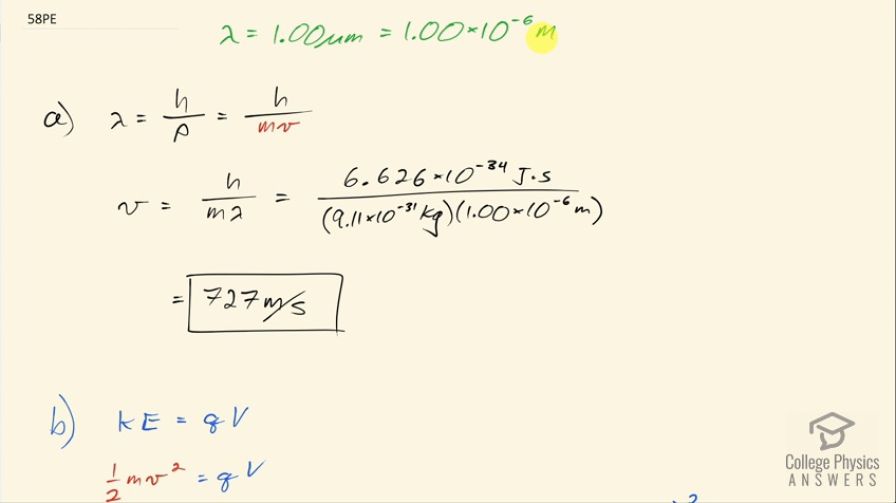 58PE
λ = 1.00μm = 1.00×10⁻⁶ m
a) λ = h/p = h/mv
v = h/mλ = 6.626×10⁻³⁴ J·s/(9.11×10⁻³¹ kg)(1.00×10⁻⁶ m)
= 727 m/s
b) KE = qV
1/2 mv² = qV
College Physics
ANSWERS